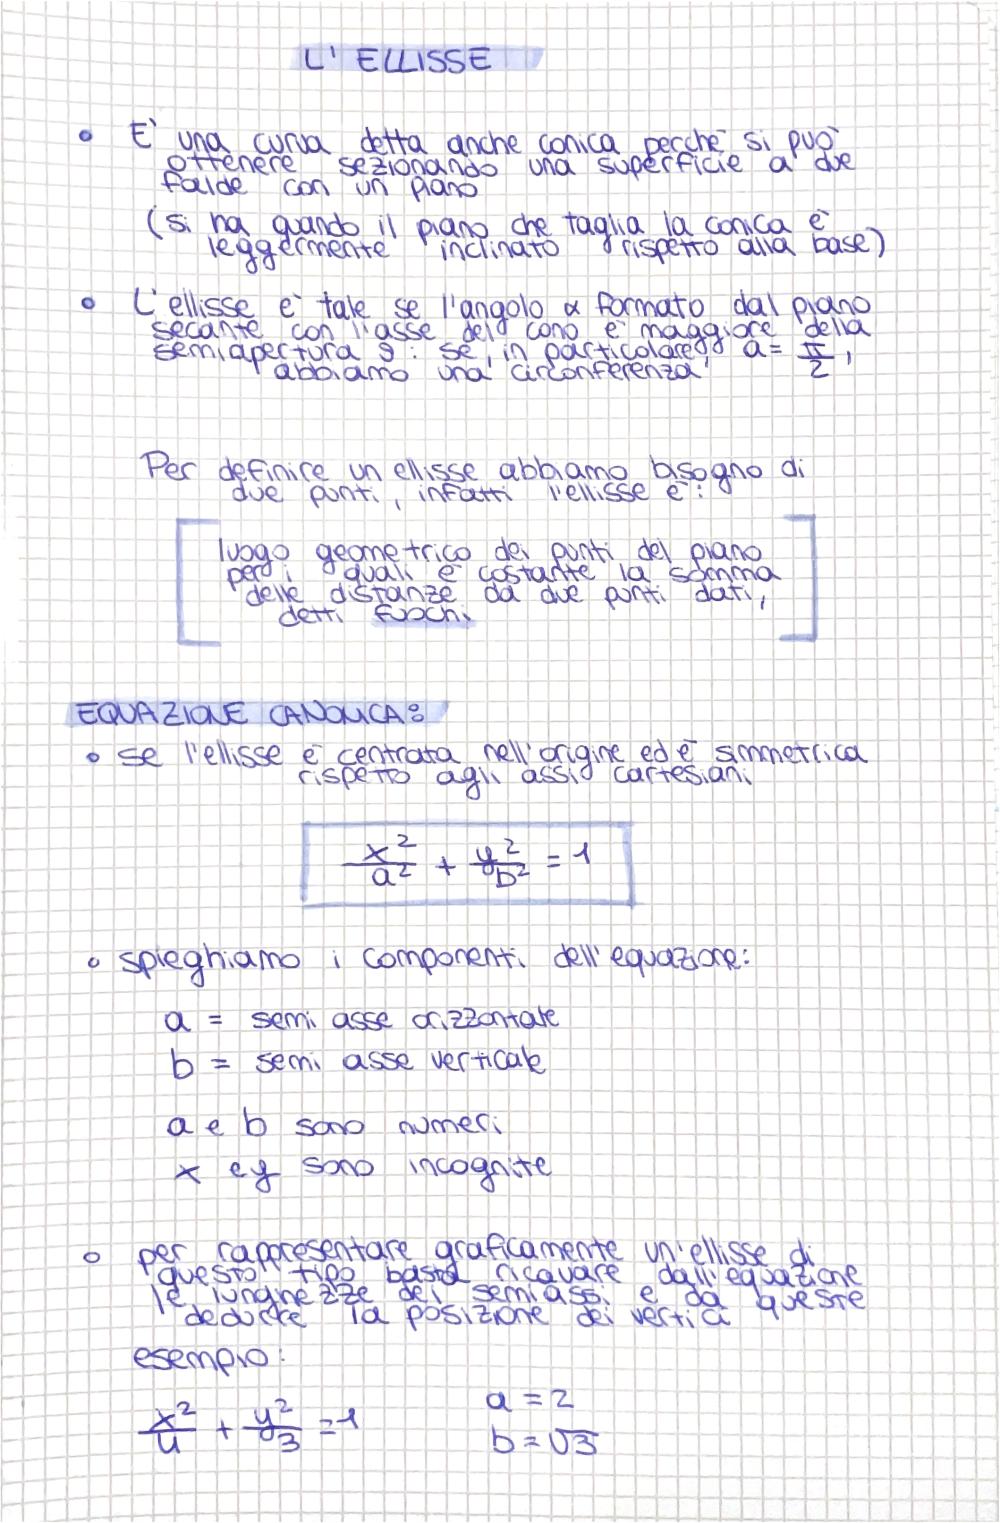 L' ELLISSE
• E' una curva detta anche conica perchè si può
ottenere sezionando una superficie a due
falde con un piano
(si ha quando il piano che taglia la conica è
leggermente inclinato rispetto alla base)
• L'ellisse è tale se l'angolo α formato dal piano
secante con l'asse del cono è maggiore della
semiapertura θ: se, in particolare, a = π/2,
abbiamo una circonferenza
Per definire un ellisse abbiamo bisogno di
due punti, infatti l'ellisse è:
luogo geometrico dei punti del piano
per i quali è costante la somma
delle distanze da due punti dati,
detti fuochi.
EQUAZIONE CANONICA:
• se l'ellisse è centrata nell'origine ed è simmetrica
rispetto agli assi cartesiani
x²/a² + y²/b² = 1
• spieghiamo i componenti dell'equazione:
a = semi asse orizzontale
b = semi asse verticale
a e b sono numeri
x e y sono incognite
• per rappresentare graficamente un'ellisse di
questo tipo basta ricavare dall'equazione
le lunghezze dei semiassi e da queste
dedurre la posizione dei vertici
esempio:
x²/4 + y²/3 = 1 a = 2
b = √3